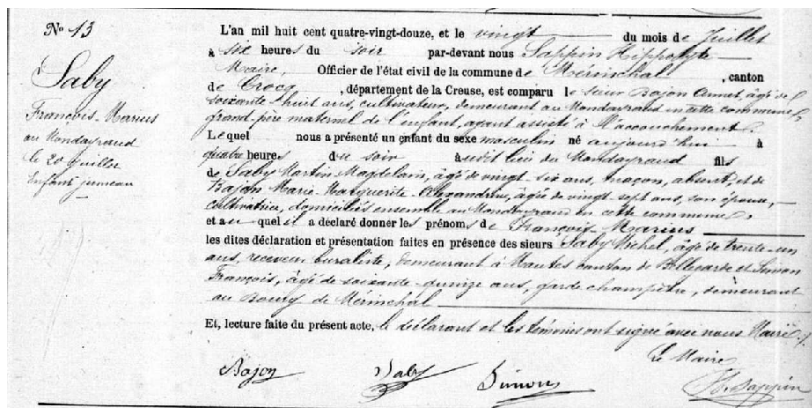 N° 13
Saby
François-Marius
au Mondayraud
le 20 Juillet
Enfant jumeau
L'an mil huit cent quatre-vingt-douze, et le vingt du mois de Juillet
à six heures du soir par-devant nous Sappin Hippolyte
Maire, Officier de l'état civil de la commune de Mérinchal, canton
de Crocq, département de la Creuse, est comparu le sieur Bajon Annet, âgé de
soixante-huit ans, cultivateur, demeurant au Mondayraud en cette commune,
grand-père maternel de l'enfant, ayant assisté à l'accouchement.
Lequel nous a présenté un enfant du sexe masculin né aujourd'hui à
quatre heures du soir audit lieu du Mondayraud fils
de Saby Martin Magdelain, âgé de vingt-six ans, maçon, absent, et de
Bajon Marie Marguerite Alexandrine, âgée de vingt-sept ans, son épouse,
cultivatrice, domiciliés ensemble au Mondayraud en cette commune,
et auquel il a déclaré donner les prénoms de François-Marius
les dites déclaration et présentation faites en présence des sieurs Saby Michel, âgé de trente-un
ans, receveur buraliste, demeurant à Mautes canton de Bellegarde et Simon
François, âgé de soixante-quinze ans, garde champêtre, demeurant
au Bourg de Mérinchal
Et, lecture faite du présent acte, le déclarant et les témoins ont signé avec nous Maire.
Le Maire
Bajon Saby Simon H. Sappin